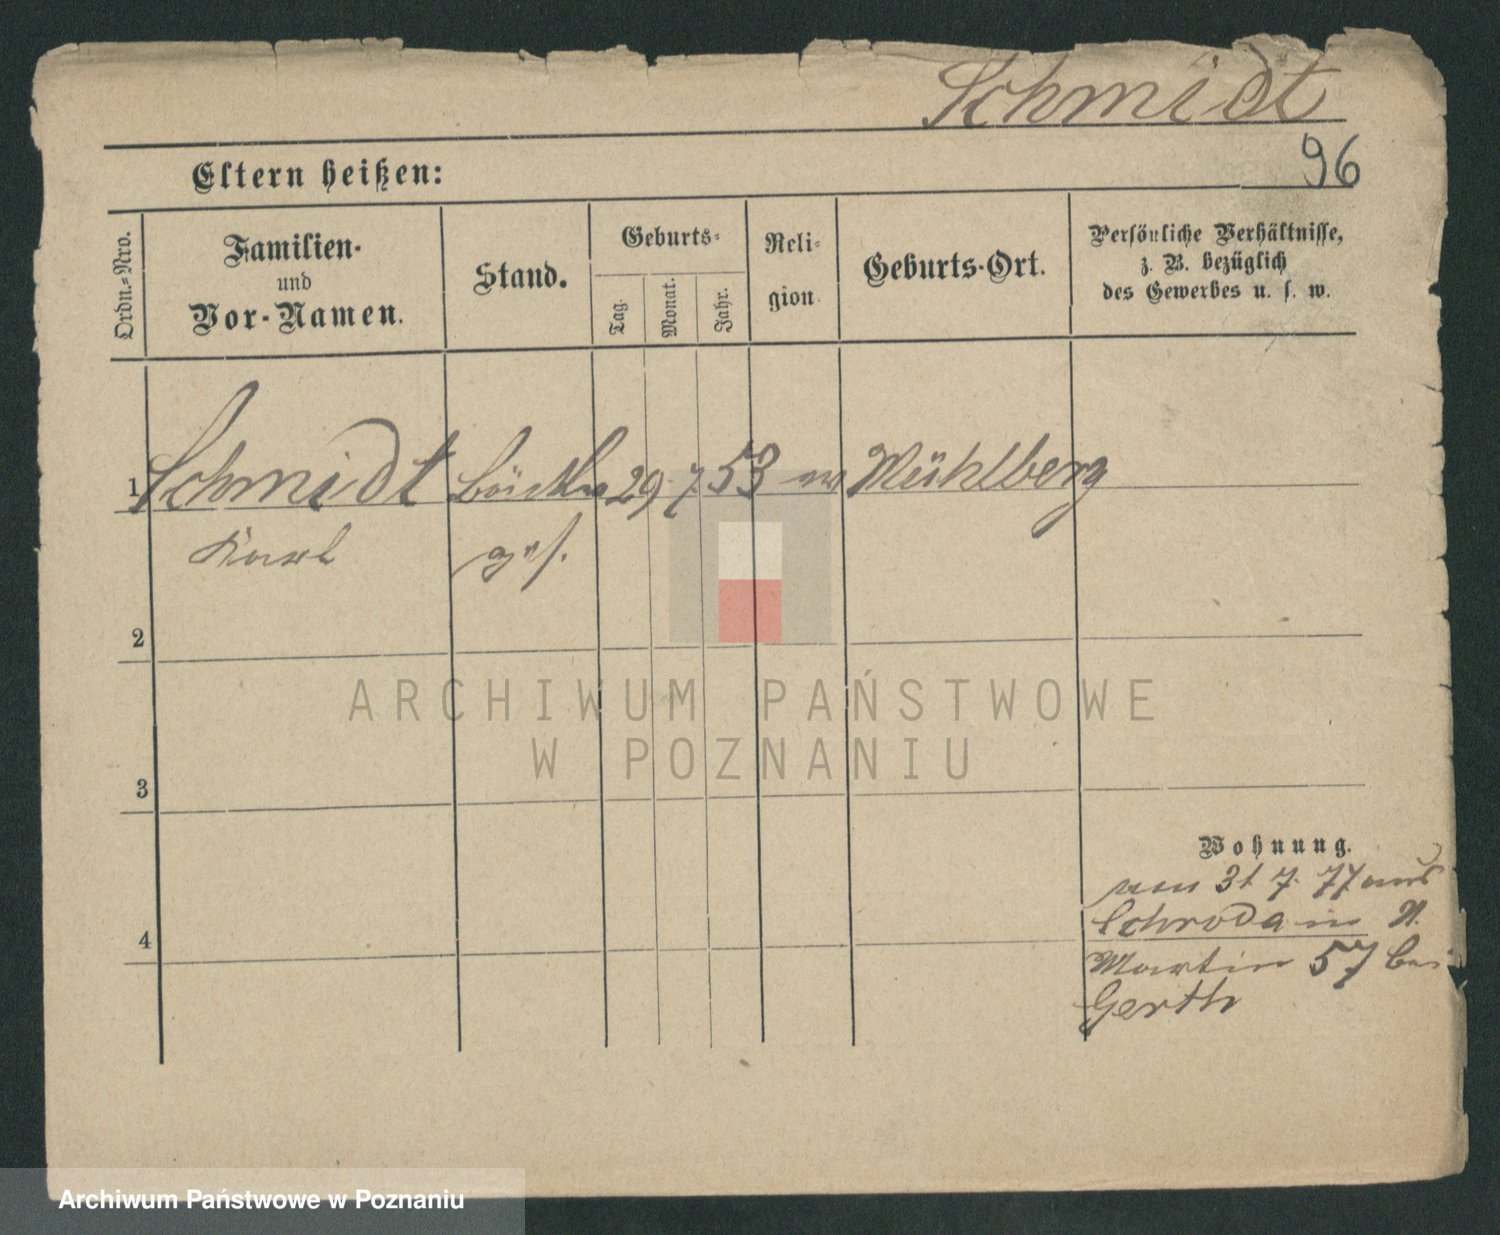 Schmidt
96
Eltern heißen:
Ordn.-Nro.
Familien-
und
Vor-Namen.
Stand.
Geburts-
Tag.
Monat.
Jahr.
Reli-
gion
Geburts-Ort.
Persönliche Verhältnisse,
z. B. bezüglich
des Gewerbes u. s. w.
1 Schmidt 29 7 53 Mühlberg
Karl ges.
2
ARCHIWUM PAŃSTWOWE
W POZNANIU
3
Wohnung.
31 7. 77 aus
Schroda in
4
Martin 57 bei
Gerth
Archiwum Państwowe w Poznaniu